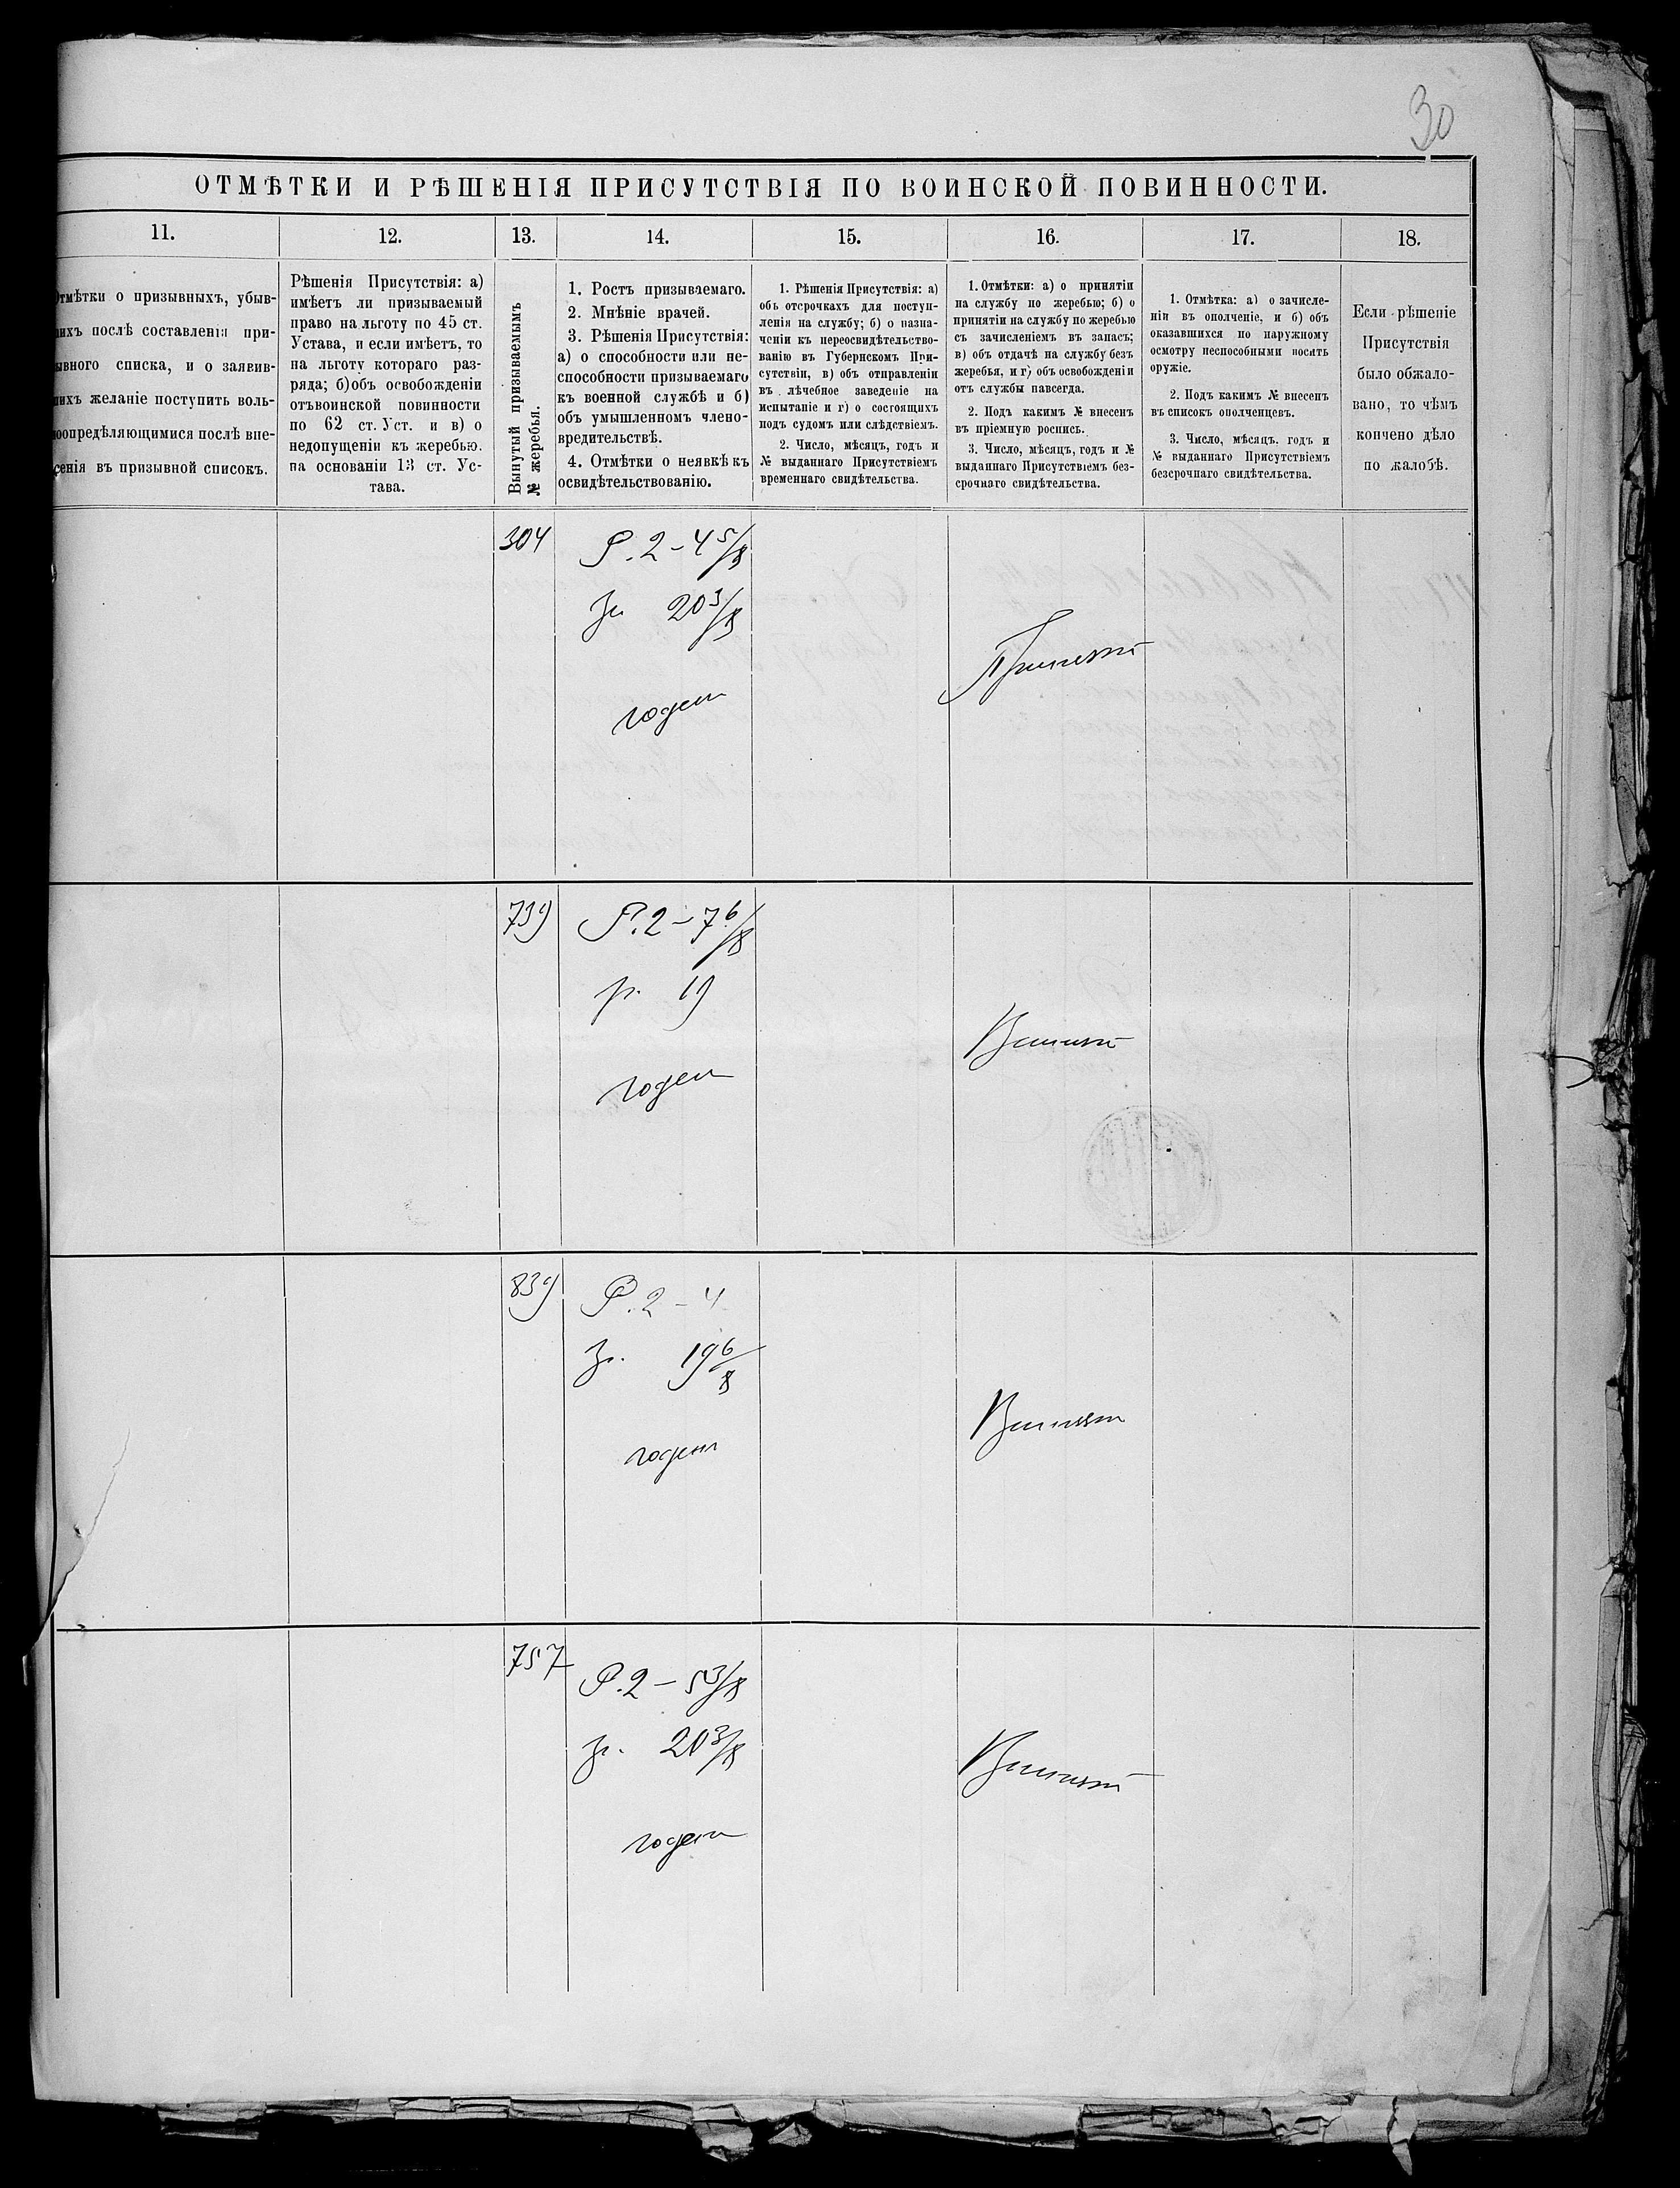 30
ОТМѢТКИ И РѢШЕНІЯ ПРИСУТСТВІЯ ПО ВОИНСКОЙ ПОВИННОСТИ.
11.
12.
13.
14.
15.
16.
17.
18.
Отмѣтки о призывныхъ, убыв-
шихъ послѣ составленія при-
зывного списка, и о заявив-
шихъ желаніе поступить воль-
ноопредѣляющимися послѣ вне-
сенія въ призывной списокъ.
Рѣшенія Присутствія: а)
имѣетъ ли призываемый
право на льготу по 45 ст.
Устава, и если имѣетъ, то
на льготу котораго раз-
ряда; б) объ освобожденіи
отъ воинской повинности
по 62 ст. Уст. и в) о
недопущеніи къ жеребью.
на основаніи 13 ст. Ус-
тава.
Вынутый призываемымъ
№ жеребья.
1. Ростъ призываемаго.
2. Мнѣніе врачей.
3. Рѣшенія Присутствія:
а) о способности или не-
способности призываемаго
къ военной службѣ и б)
объ умышленномъ члено-
вредительствѣ.
4. Отмѣтки о неявкѣ къ
освидѣтельствованію.
1. Рѣшенія Присутствія: а)
объ отсрочкахъ для поступ-
ленія на службу; б) о назна-
ченіи къ переосвидѣтельство-
ванію въ Губернскомъ При-
сутствіи, в) объ отправленіи
въ лѣчебное заведеніе на
испытаніе и г) о состоящихъ
подъ судомъ или слѣдствіемъ.
2. Число, мѣсяцъ, годъ и
№ выданнаго Присутствіемъ
временнаго свидѣтельства.
1. Отмѣтки: а) о принятіи
на службу по жеребью; б) о
принятіи на службу по жеребью
съ зачисленіемъ въ запасъ;
в) объ отдачѣ на службу безъ
жеребья, и г) объ освобожденіи
отъ службы навсегда.
2. Подъ какимъ № внесенъ
въ пріемную роспись.
3. Число, мѣсяцъ, годъ и №
выданнаго Присутствіемъ без-
срочнаго свидѣтельства.
1. Отмѣтка: а) о зачисле-
ніи въ ополченіе, и б) объ
оказавшихся по наружному
осмотру неспособными носить
оружіе.
2. Подъ какимъ № внесенъ
въ списокъ ополченцевъ.
3. Число, мѣсяцъ, годъ и
№ выданнаго Присутствіемъ
безсрочнаго свидѣтельства.
Если рѣшеніе
Присутствія
было обжало-
вано, то чѣмъ
кончено дѣло
по жалобѣ.
304
Р. 2 – 4 5/8
Гр. 20 3/8
годен
Принят
739
Р. 2 – 7 6/8
гр. 19
годен
Принят
839
Р. 2 – 4
Гр. 19 6/8
годен
Принят
757
Р. 2 – 5 3/8
гр. 20 3/8
годен
Принят